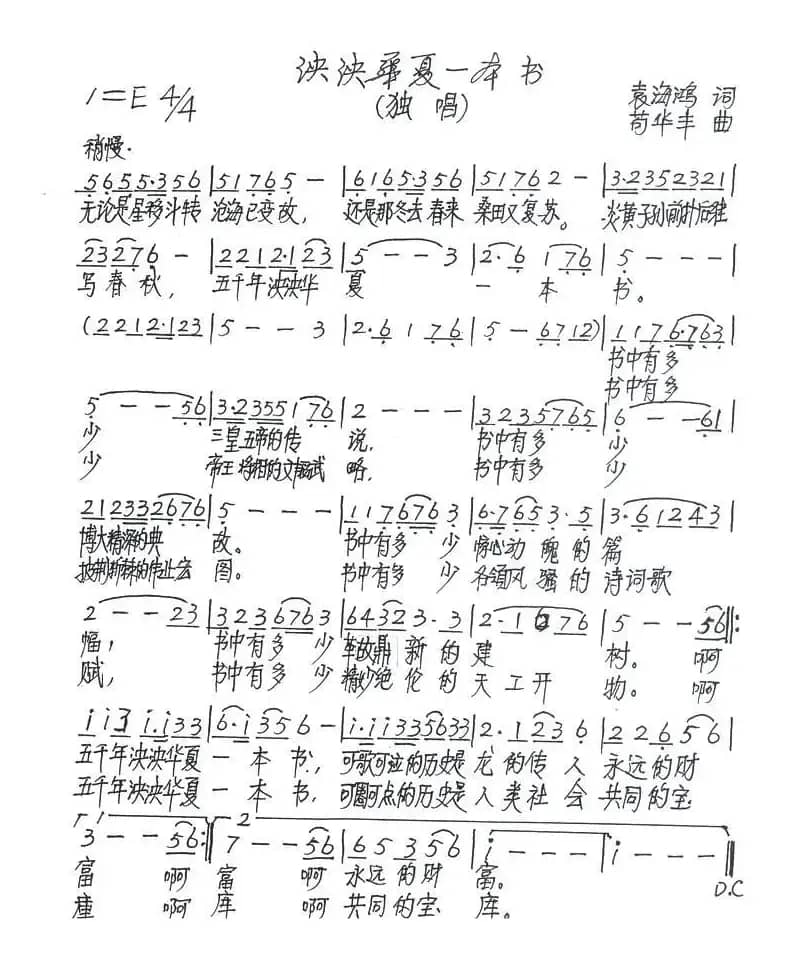 泱泱华夏一本书
(独 唱)
1=E 4/4
袁海鸿 词
苟华丰 曲
稍慢.
5655·356|51765 —|6165·356|51762 —|3·2352321|
无论是星移斗转 沧海已变故, 还是那冬去春来 桑田又复苏。炎黄子孙前扑后继
23276 —|2212·123|5 — — 3|2·6 176|5 — — —|
写春秋, 五千年泱泱华 夏 一 本 书。
(2212·123|5 — — 3|2·6 1 76|5 — 6712)|1176·763|
书中有多
书中有多
5 — — 56|3·2355176|2 — — —|3235765|6 — — 61|
少 三皇五帝的传 说, 书中有多 少
少 帝王将相的文韬武 略, 书中有多 少
212332676|5 — — —|1176763|6·7653·5|3·61243|
博大精深的典 故。 书中有多 少 惊心动 魄的篇
披荆斩棘的伟业宏 图。 书中有多 少 各领风 骚的诗词歌
2 — — 23|3236763|64323·3|2·1676|5 — — 56:|
幅, 书中有多 少 革故鼎 新的建 树。 啊
赋, 书中有多 少 精妙绝 伦的天工开 物。 啊
113 1·133|6·1356 —|1·11335633|2·1236|22656|
五千年泱泱华夏一 本 书, 可歌可泣的历史是 龙的传 人 永远的财
五千年泱泱华夏一 本 书, 可圈可点的历史是 人类社 会 共同的宝
1 2
3 — — 56:|7 — — 56|65356|1 — — —|1 — — —||
富 啊 富 啊 永远的财 富。
啊 库 啊 共同的宝 库。
D.C